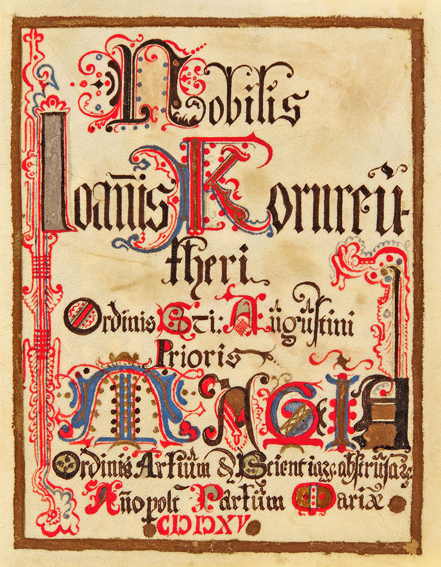 Nobilis
Ioan̄is Kornreü-
theri
Ordinis Sti: Aügüstini
Prioris
MAGIA
Ordinis Artiüm & Scientiaꝝ abstrüsaꝝ
Año post Partüm Mariæ
CIƆIƆXV